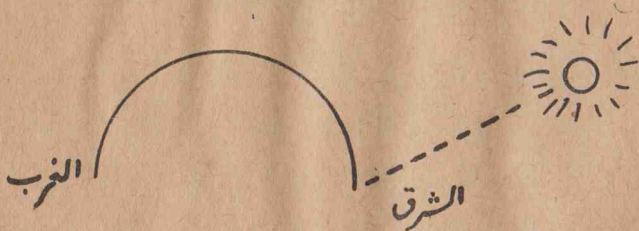 الغرب
الشرق